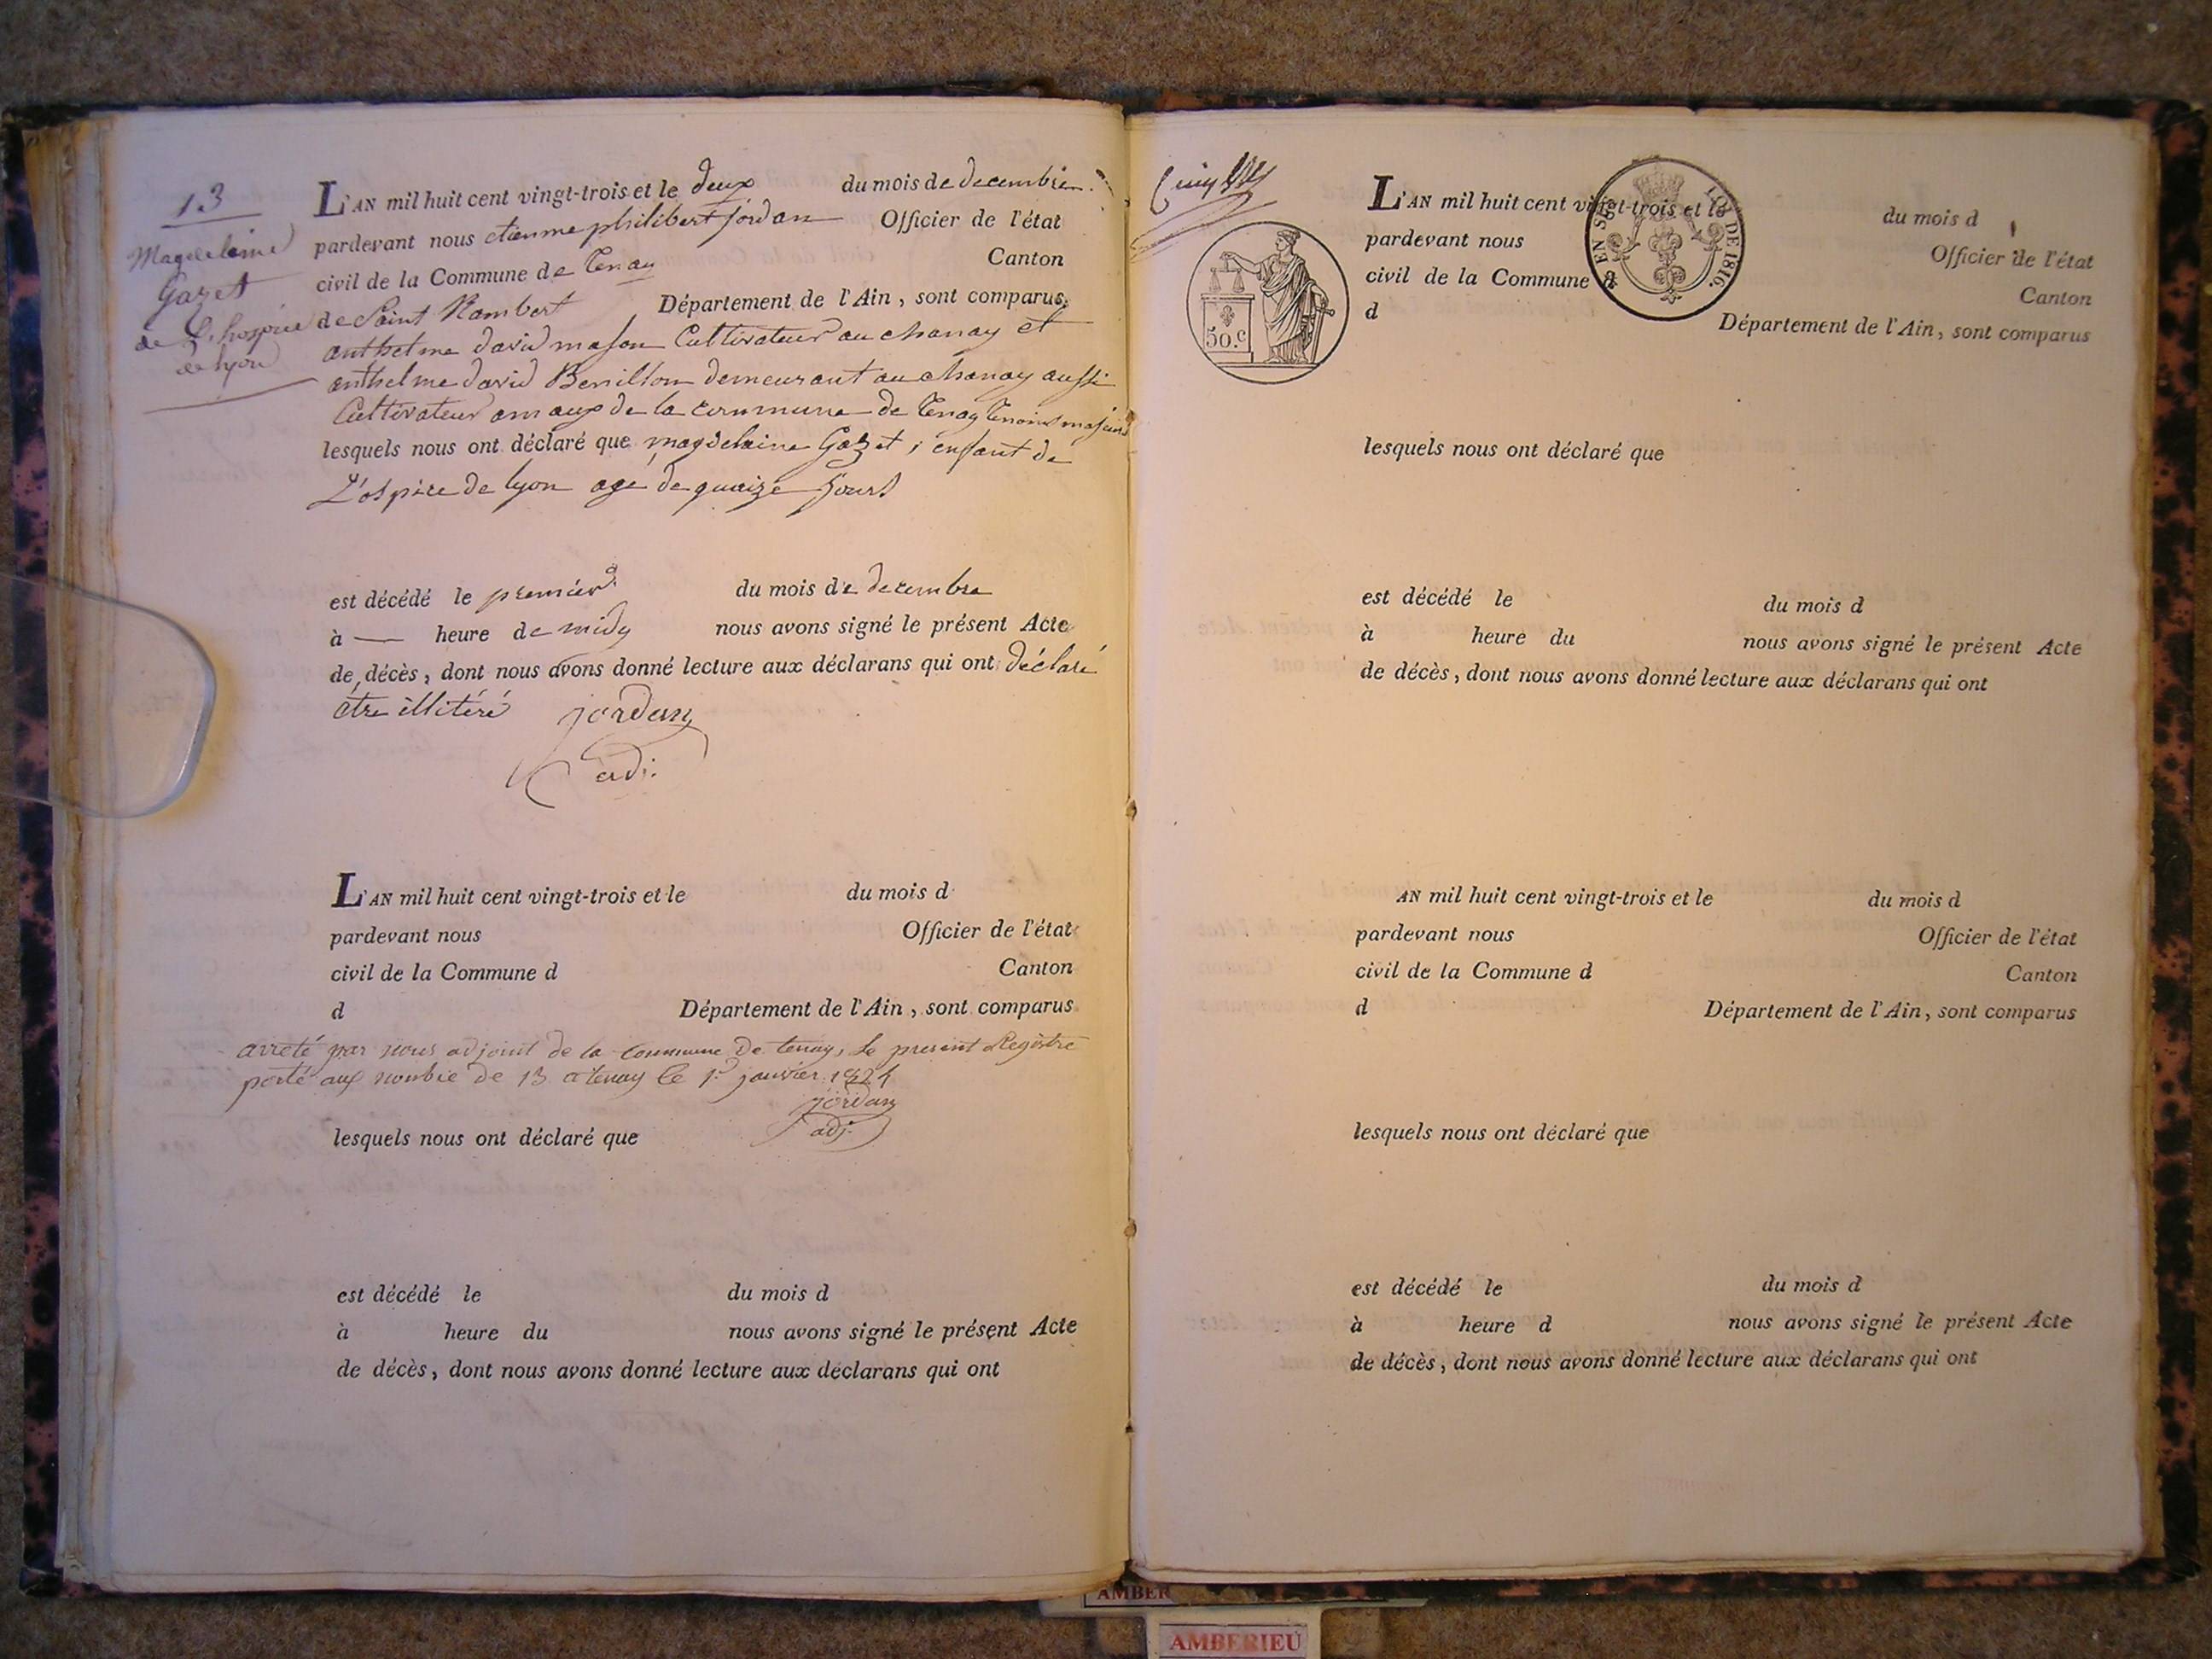 13
Magdelaine
Gazet
de L'hospice
de lyon
L'AN mil huit cent vingt-trois et le deux du mois de decembre
pardevant nous etienne philibert jordan Officier de l'état
civil de la Commune de Tenay Canton
de Saint Rambert Département de l'Ain, sont comparus
anthelme david mason Cultivateur au chanay et
anthelme david Berillon demeurant au chanay aussi
Cultivateur de la commune de Tenay
lesquels nous ont déclaré que magdelaine Gazet, enfant de
L'ospice de lyon agé de quinze jours
est décédé le premier du mois de decembre
à — heure de midy nous avons signé le présent Acte
de décès, dont nous avons donné lecture aux déclarans qui ont déclaré
être illitéré jordan
adj.
L'AN mil huit cent vingt-trois et le du mois d
pardevant nous Officier de l'état
civil de la Commune d Canton
d Département de l'Ain, sont comparus
arreté par nous adjoint de la commune de tenay, le present Registre
porté aux nombre de 13 a tenay le 1er janvier 1824
jordan
adj.
lesquels nous ont déclaré que
est décédé le du mois d
à heure du nous avons signé le présent Acte
de décès, dont nous avons donné lecture aux déclarans qui ont
50.C
EN SUS
LOI DE 1816.
L'AN mil huit cent vingt-trois et le du mois d
pardevant nous Officier de l'état
civil de la Commune d Canton
d Département de l'Ain, sont comparus
lesquels nous ont déclaré que
est décédé le du mois d
à heure du nous avons signé le présent Acte
de décès, dont nous avons donné lecture aux déclarans qui ont
AN mil huit cent vingt-trois et le du mois d
pardevant nous Officier de l'état
civil de la Commune d Canton
d Département de l'Ain, sont comparus
lesquels nous ont déclaré que
est décédé le du mois d
à heure d nous avons signé le présent Acte
de décès, dont nous avons donné lecture aux déclarans qui ont
AMBER
AMBERIEU